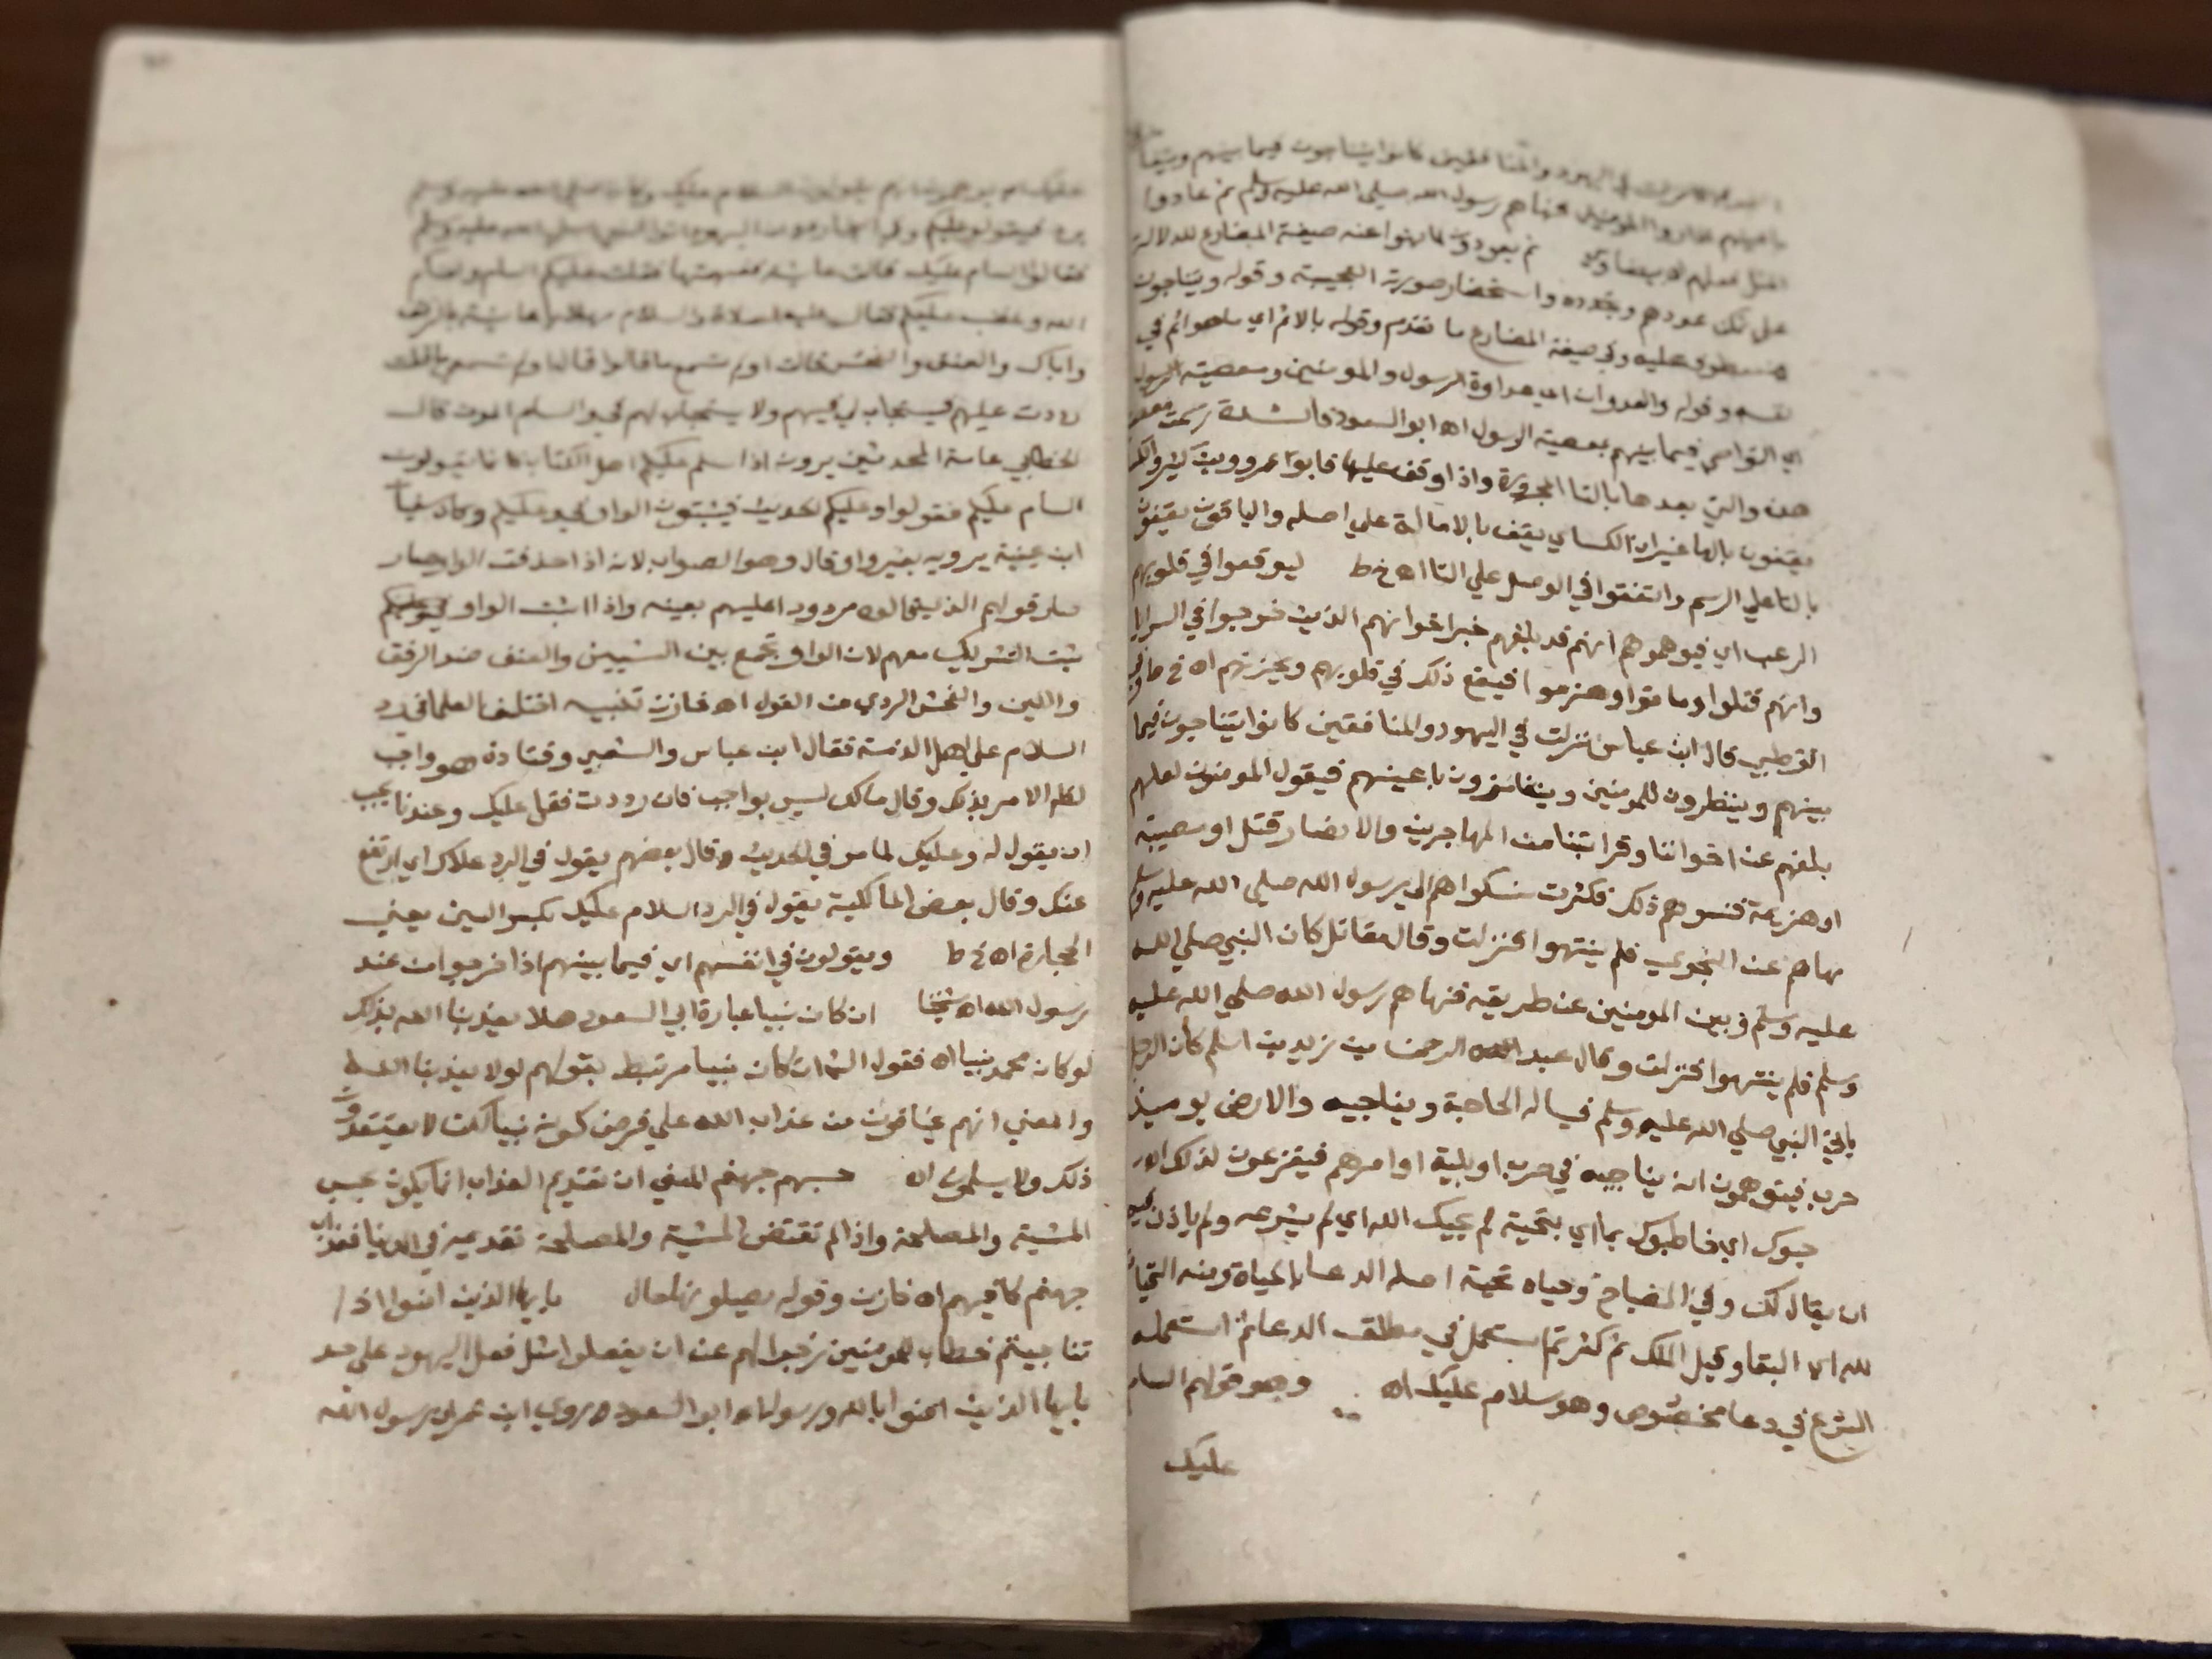 اليهود والمنافقين كانوا يتناجون فيما بينهم
باعينهم اذا راوا المومنين فنهاهم رسول الله صلى الله عليه وسلم ثم عادوا
لمثل فعلهم اه بيضاوي ثم يعودون لما نهوا عنه صيغة المضارع للدلالة
على تكرر عودهم وتجدده واستحضار صورته العجيبة وقوله ويتناجون
عليه وفي صيغة المضارع ما تقدم وقوله بالاثم اي بما هو اثم في
نفسه وقوله والعدوان اي عداوة الرسول والمومنين ومعصيته الرسول
اي التواصي فيما بينهم بمعصية الرسول اه ابو السعود فائدة رسمت معصيت
هذه والتي بعدها بالتا المجرورة واذا وقف عليها فابو عمرو وابن كثير والكساي
يقفون بالها غير ان الكساي يقف بالامالة على اصله والباقون يقفون
بالتا على الرسم واتفقوا في الوصل على التا اه خط ليوقعوا في قلوبهم
الرعب اي فيوهموهم انهم قد بلغهم خبر اخوانهم الذين خرجوا في السرايا
وانهم قتلوا او ماتوا او هزموا فيقع ذلك في قلوبهم ويحزنهم اه خ ما في
القرطبي قال ابن عباس نزلت في اليهود والمنافقين كانوا يتناجون فيما
بينهم وينظرون للمومنين ويتغامزون باعينهم فيقول المومنون لعلهم
بلغهم عن اخواننا وقرابتنا من المهاجرين والانصار قتل او مصيبة
او هزيمة فنسوهم ذلك فكثرت شكواهم الى رسول الله صلى الله عليه وسلم
نهاهم عن النجوى فلم ينتهوا فنزلت وقال مقاتل كان النبي صلى الله
عليه وسلم وبين المومنين عن طريقه فنهاهم رسول الله صلى الله عليه
وسلم فلم ينتهوا فنزلت وقال عبد الرحمن بن زيد بن اسلم كان الرجل
ياتي النبي صلى الله عليه وسلم فيساله الحاجة ويناجيه والارض يوميذ
حرب فيتوهمون انه يناجيه في حرب او بلية او امر هم فيفزعون لذلك اه
حيوك اي خاطبوك بما اي بتحية لم يحيك الله اي لم يشرعه ولم ياذن فيه
ان يقال لك وفي المصباح وحياه تحية اصله الدعا بالحياة ومنه التحيات
لله اي البقا وقيل الملك ثم كثر حتى استعمل في مطلق الدعا ثم استعمله
الشرع في دعا مخصوص وهو سلام عليك اه وهو قولهم السام
عليك
السلام عليك وكان صلى الله عليه وسلم
يرد فيقول وعليكم وفي البخاري ان اليهود اتوا النبي صلى الله عليه وسلم
فقالوا السام عليك قالت عايشة ففهمتها فقلت عليكم السام ولعنكم
الله وغضب عليكم فقال عليه الصلاة والسلام مهلا يا عايشة بالرفق
واياك والعنف والفحش قالت اولم تسمع ما قالوا قال اولم تسمعي ما قلت
رددت عليهم فيستجاب لي فيهم ولا يستجاب لهم في والسام الموت قال
الخطابي عامة المحدثين يروون اذا سلم عليكم اهل الكتاب فانما يقولون
السام عليكم فقولوا وعليكم الحديث فيثبتون الواو في وعليكم وكان سفيان
ابن عيينة يرويه بغير واو قال وهو الصواب لانه اذا حذفت الواو صار
قولهم الذي قالوه مردودا عليهم بعينه واذا اثبت الواو في وعليكم
يثبت التشريك معهم لان الواو تجمع بين الشيين والعنف ضد الرفق
واللين والفحش الردي من القول اه خازن تنبيه اختلف العلما في رد
السلام على اهل الذمة فقال ابن عباس والشعبي وقتادة هو واجب
لظاهر الامر بذلك وقال مالك ليس بواجب فان رددت فقل عليك وعندنا يجب
ان يقول له وعليك لما مر في الحديث وقال بعضهم يقول في الرد علاك اي ارتفع
عنك وقال بعض المالكية يقول في الرد السلام عليك بكسر السين يعني
الحجارة اه خط ويقولون في انفسهم اي فيما بينهم اذا خرجوا من عند
رسول الله اه شيخنا ان كان نبيا عبارة ابي السعود هلا يعذبنا الله بذلك
لو كان محمد نبيا اه فقول الش ان كان نبيا مرتبط بقولهم لولا يعذبنا الله
والمعنى انهم يخافون من عذاب الله على فرض كونه نبيا لكن لا يعتقدون
ذلك ولا يسلمونه اه حسبهم جهنم المعنى ان تقديم العذاب انما يكون بحسب
المشية والمصلحة واذا لم تقتض المشية والمصلحة تقديمه في الدنيا فعذاب
جهنم كافيهم اه خازن وقوله يصلونها حال يا ايها الذين امنوا اذا
تناجيتم خطاب للمومنين زجرا لهم عن ان يفعلوا مثل فعل اليهود على حد
يا ايها الذين امنوا امنوا بالله ورسوله اه ابو السعود وروى ابن عمر ان رسول الله